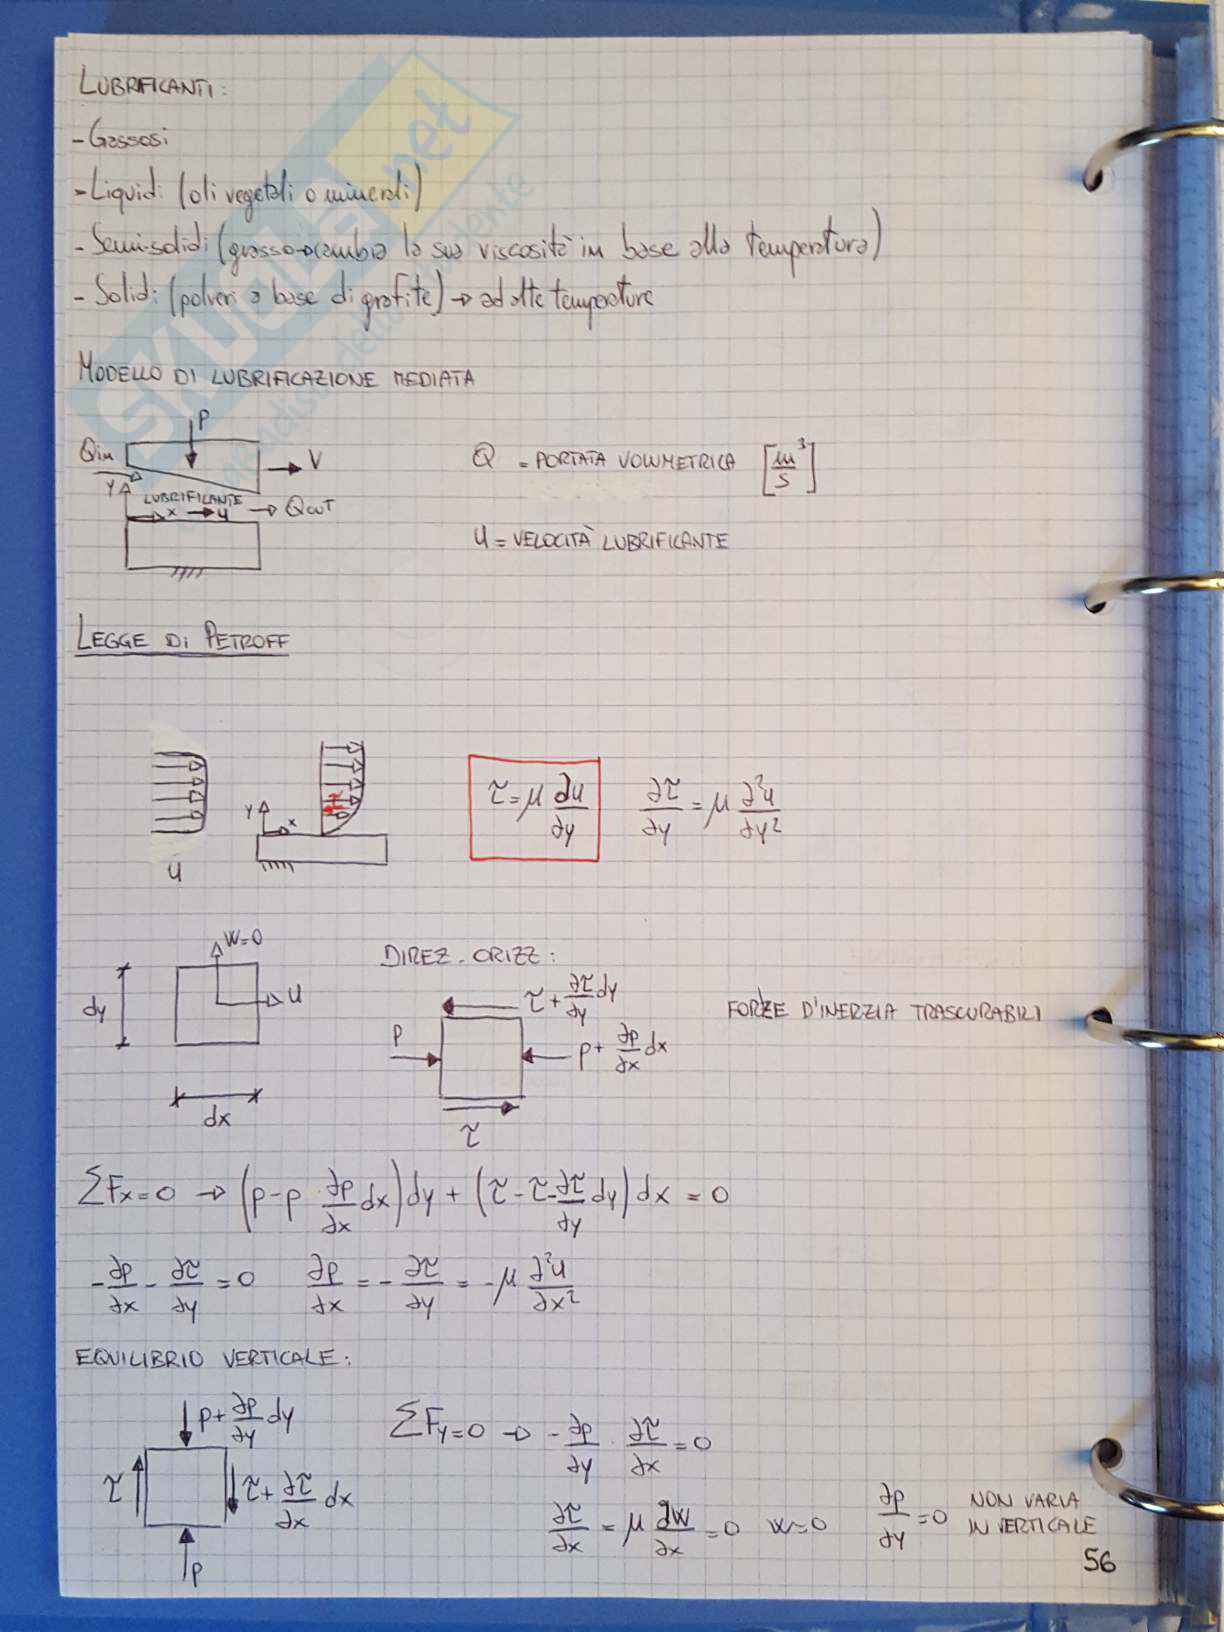 LUBRIFICANTI:
- Gassosi
- Liquidi (oli vegetali o minerali)
- Semi-solidi (grasso→cambia la sua viscosità in base alla temperatura)
- Solidi (polveri a base di grafite) → ad alte temperature
MODELLO DI LUBRIFICAZIONE MEDIATA
P
Qin
V
Y
LUBRIFICANTE
x → u → QOUT
Q = PORTATA VOLUMETRICA [m³/s]
U = VELOCITÀ LUBRIFICANTE
LEGGE DI PETROFF
u
Y
x
τ
τ = μ ∂u/∂y
∂τ/∂y = μ ∂²u/∂y²
W=0
u
dy
dx
DIREZ. ORIZZ:
τ + ∂τ/∂y dy
P
p + ∂p/∂x dx
τ
FORZE D'INERZIA TRASCURABILI
ΣFx=0 → (p-p ∂p/∂x dx)dy + (τ-τ-∂τ/∂y dy)dx = 0
-∂p/∂x - ∂τ/∂y = 0 ∂p/∂x = -∂τ/∂y = -μ ∂²u/∂x²
EQUILIBRIO VERTICALE:
p+ ∂p/∂y dy
τ
τ+ ∂τ/∂x dx
P
ΣFy=0 → -∂p/∂y · ∂τ/∂x = 0
∂τ/∂x = μ ∂w/∂x = 0 w=0
∂p/∂y = 0 NON VARIA
IN VERTICALE
56
SKUOLA.net